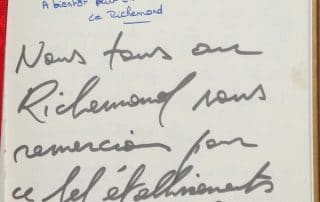 A bientôt pour
Le Richemond
Nous tous au
Richemond vous
remercions pour
ce bel établissements